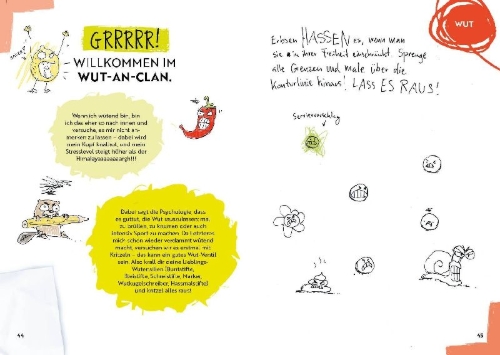 GRRRRR!
WILLKOMMEN IM
WUT-AN-CLAN.
Wenn ich wütend bin, bin
ich das eher so nach innen und
versuche, es mir nicht an-
merken zu lassen – dabei wird
mein Kopf knallrot, und mein
Stresslevel steigt höher als der
Himalayaaaaaaaargh!!!
Dabei sagt die Psychologie, dass
es guttut, die Wut rauszulassen: ma
zu brüllen, zu knurren oder auch
intensiv Sport zu machen. Da Letzteres
mich schon wieder verdammt wütend
macht, versuchen wir es erstmal mit
Kritzeln – das kann ein gutes Wut-Ventil
sein. Also krall dir deine Lieblings-
Wutensilien (Buntstifte,
Bleistifte, Schreistifte, Marker,
Wutkugelschreiber, Hassmalstifte)
und kritzel alles raus!
44
WUT
Erbsen HASSEN es, wenn man
sie in ihrer Freiheit einschränkt. Sprenge
alle Grenzen und male über die
Konturlinie hinaus! LASS ES RAUS!
Serviervorschlag
45